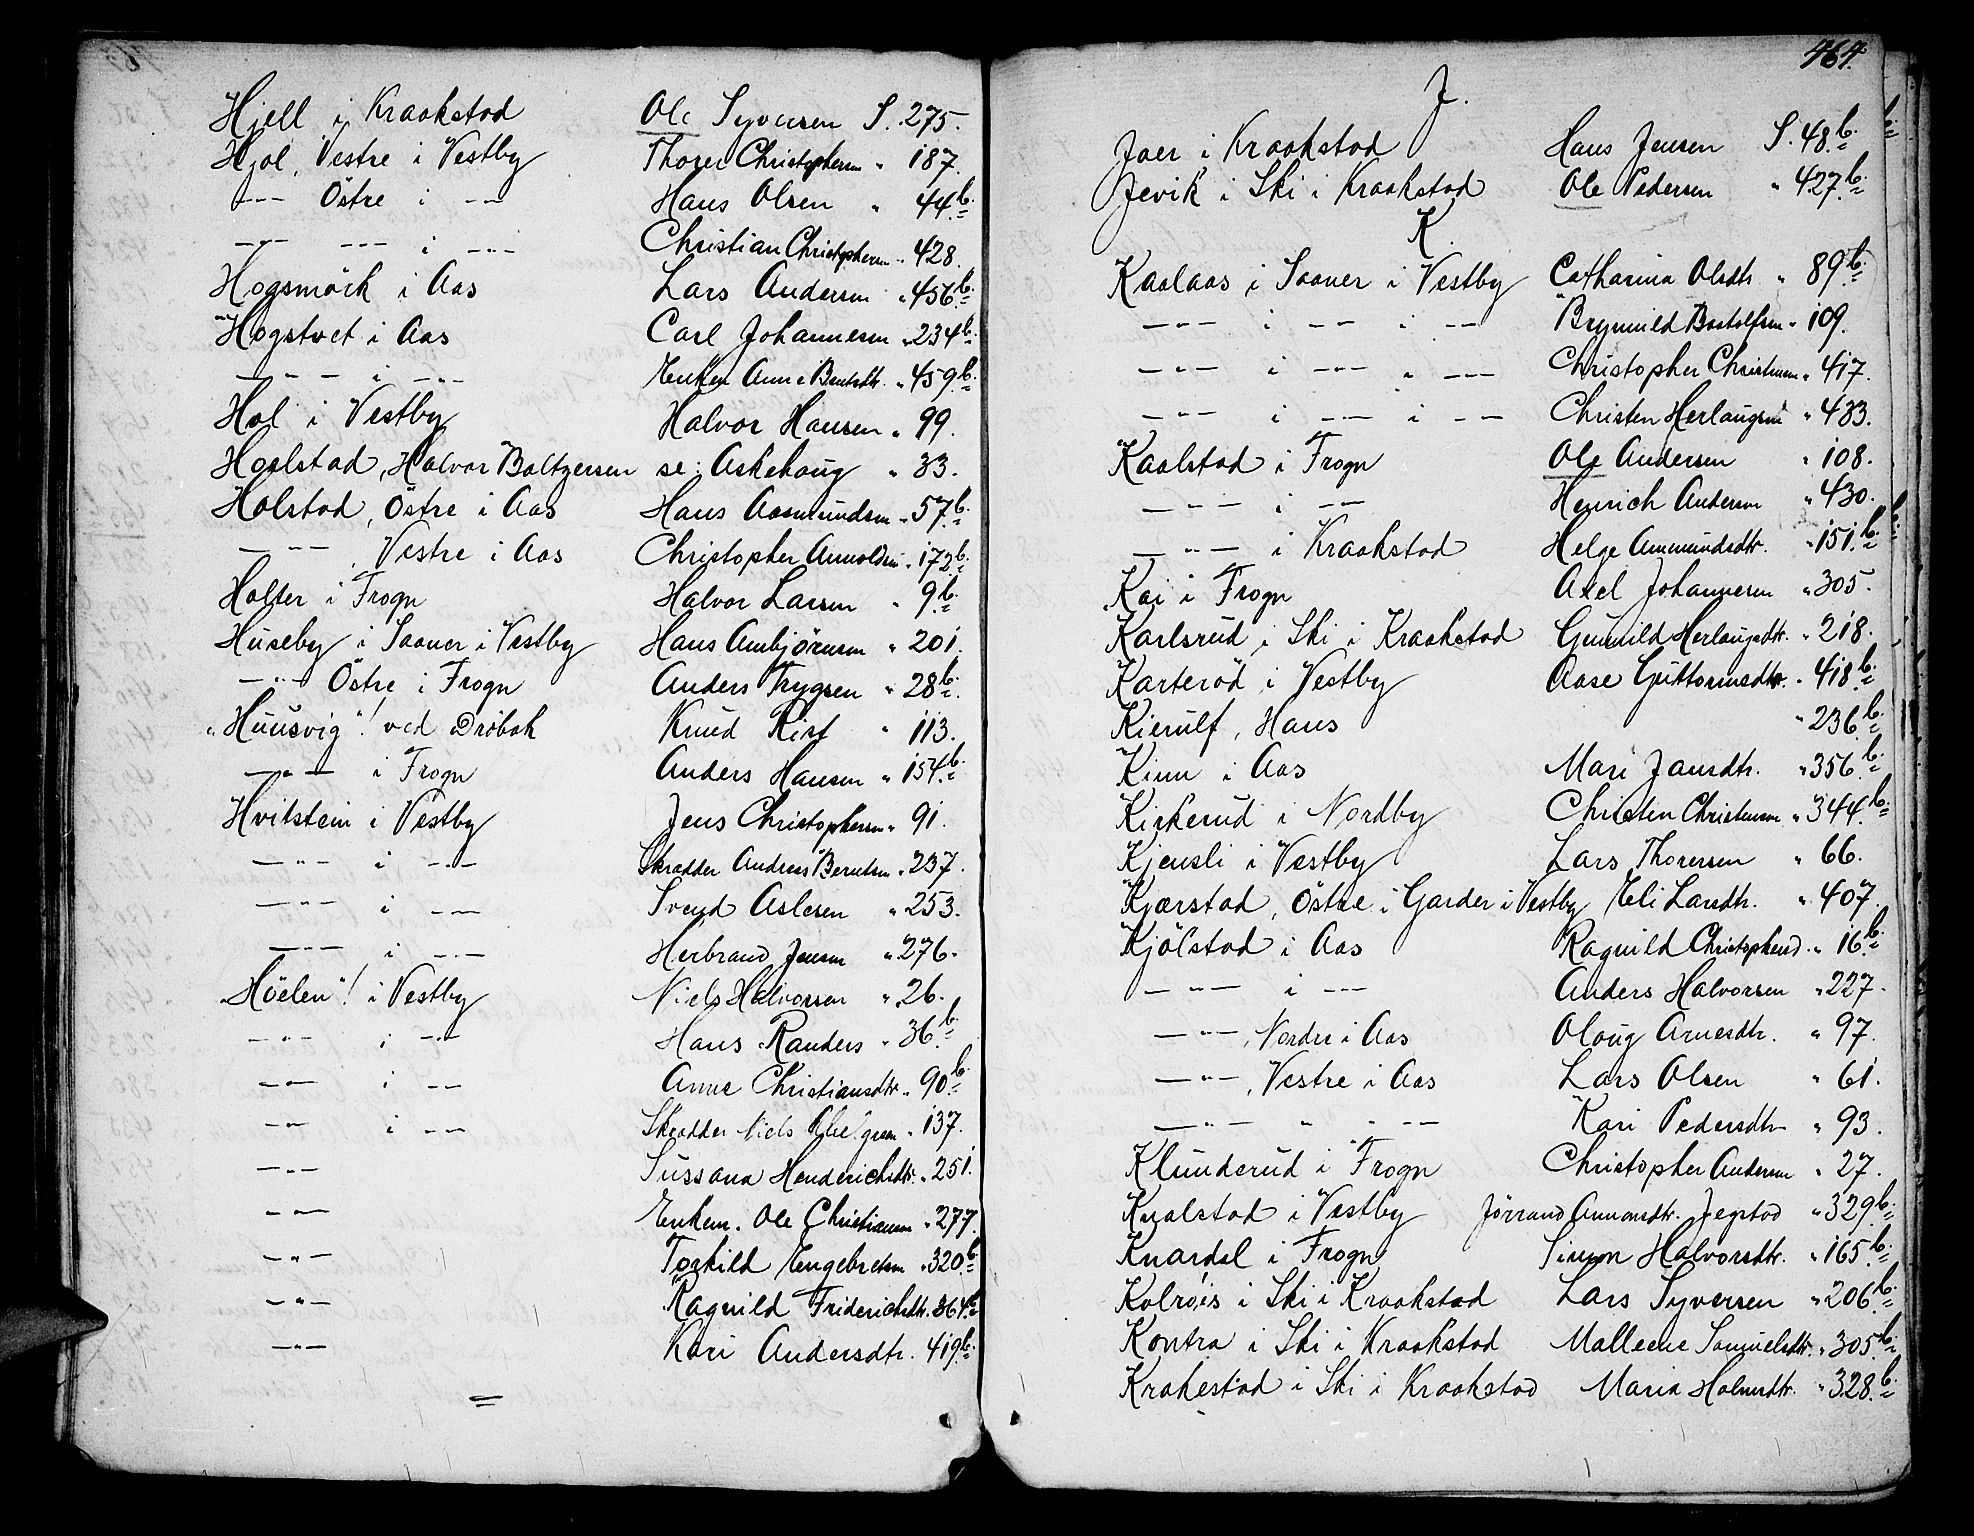 Hjell i Kraakstad Ole Syversen S. 275.
Hjol, Vestre i Vestby Thorer Christophersen " 187.
--- Östre i --- Hans Olsen " 44.b.
-"- --- i -"- Christian Christophersen " 428.
Hogsmörk i Aas Lars Andersen " 456b.
Hogstvet i Aas Carl Johannesen " 234b.
-"- i -"- Enken Anne Berntsdtr. " 459b.
Hol i Vestby Halvor Hansen " 99.
Holstad, Halvor Baltzersen se: Askehoug " 33.
Holstad, Östre i Aas Hans Aasmundsen " 57.b.
-"- , Vestre i Aas Christopher Arnoldsen " 172b.
Holter i Frogn Halvor Larsen " 9.b.
Huseby i Saaner i Vestby Hans Ambjörnsen " 201.
-"- Östre i Frogn Anders Trygsen " 28b.
"Huusvig"! ved Dröbak Knud Rist " 113.
-"- i Frogn Anders Hansen " 154.b.
Hvitstein i Vestby Jens Christophersen " 91.
-"- i -"- Skrædder Andreas Berntsen " 237.
-"- i -"- Svend Aslesen " 253.
-"- i -"- Herbrand Jensen " 276.
"Höelen"! i Vestby Niels Halvorsen " 26.
-"- i -"- Hans Randers " 36.b.
-"- i -- Anne Christiansdtr. " 90.b.
-"- i -"- Skrædder Niels " 137.
-"- Sussana Henderichsdtr. " 251.
-"- Enkem. Ole Christiansen " 277.
-"- Torkild Engebretsen " 320.b.
-"- Ragnild Friderichsdtr. 364b.
-"- Kari Andersdtr. 419b.
464.
J.
Jaer i Kraakstad Hans Jensen S. 48.b.
Jevik i Ski i Kraakstad Ole Pedersen " 427.b.
K.
Kaalaas i Saaner i Vestby Catharina Olsdtr. " 89.b.
-"- i -"- i -- Brynnild Bostolfsen " 109.
-"- i -"- " --- Christopher Christensen " 417.
-"- i --- i --- Christen Herlaugsen " 433.
Kaalstad i Frogn Ole Andersen " 108.
-"- i -- Henrich Andersen " 430.
-"- i Kraakstad Helge Ammundsdtr. " 151.b.
Kai i Frogn Axel Johannesen " 305.
Karlsrud i Ski i Kraakstad Gunnild Herlaugsdtr. " 218.
Karteröd i Vestby Aase Guttormsdtr. " 418.b.
Kierulf, Hans " 236.b.
Kinn i Aas Mari Jansdtr. " 356.b.
Kirkerud i Nordby Christen Christensen " 344.b.
Kjensli i Vestby Lars Thoressen " 66.
Kjærstad, Östre i Garder i Vestby Eli Larsdtr. " 407.
Kjölstad i Aas Ragnild Christophersd. " 16.b.
-"- i --- Anders Halvorsen " 227.
-"-, Nordre i Aas Oloug Arnesdtr. " 97.
-"-, Vestre i Aas Lars Olsen " 61.
-"- " -"- Kari Pedersdtr " 93.
Klunderud i Frogn Christopher Andersen " 27.
Knalstad i Vestby Jörrand Amondsdtr. Jegstad " 329.b.
Knardal i Frogn Simon Halvorsdtr. " 165.b.
Kolrois i Ski i Kraakstad Lars Syversen " 206.b.
Kontra i Ski i Kraakstad Malleene Samuelsdtr. " 305.b.
Krakestad i Ski i Kraakstad Maria Halvorsdtr. " 328.b.